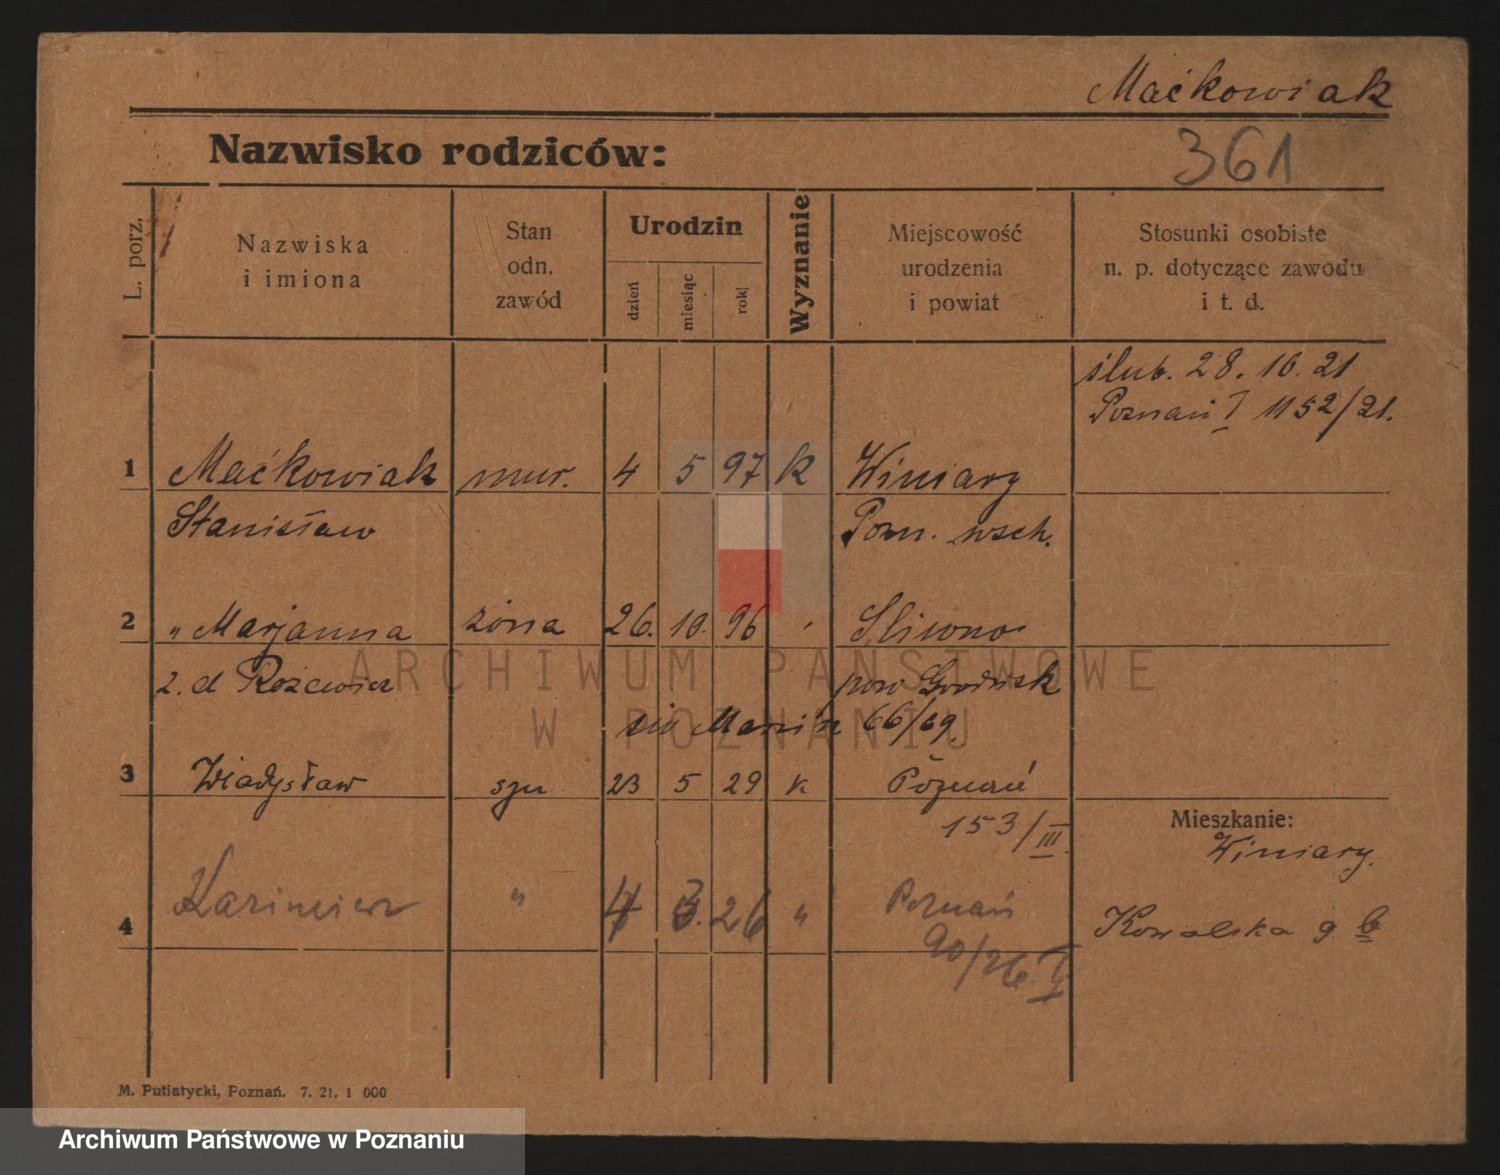 Maćkowiak
Nazwisko rodziców:
361
L. porz.
Nazwiska
i imiona
Stan
odn.
zawód
Urodzin
dzień
miesiąc
rok
Wyznanie
Miejscowość
urodzenia
i powiat
Stosunki osobiste
n. p. dotyczące zawodu
i t. d.
ślub. 28. 10. 21
Poznań I 1152/21.
1 Maćkowiak mur. 4 5 97 k Winiary
Stanisław Pozn. wsch.
2 „ Marjanna żona 26. 10. 96 Sliwno
z. d. pow Grodzisk
66/69.
3 Władysław syn 23 5 29 k Poznań
153/III.
Mieszkanie:
Winiary.
4 Kazimierz " 4 3. 26 " Poznań
90/26. V
Kowalska 9 b
M. Putiatycki, Poznań. 7. 21. 1 000
ARCHIWUM PAŃSTWOWE
W POZNANIU
Archiwum Państwowe w Poznaniu